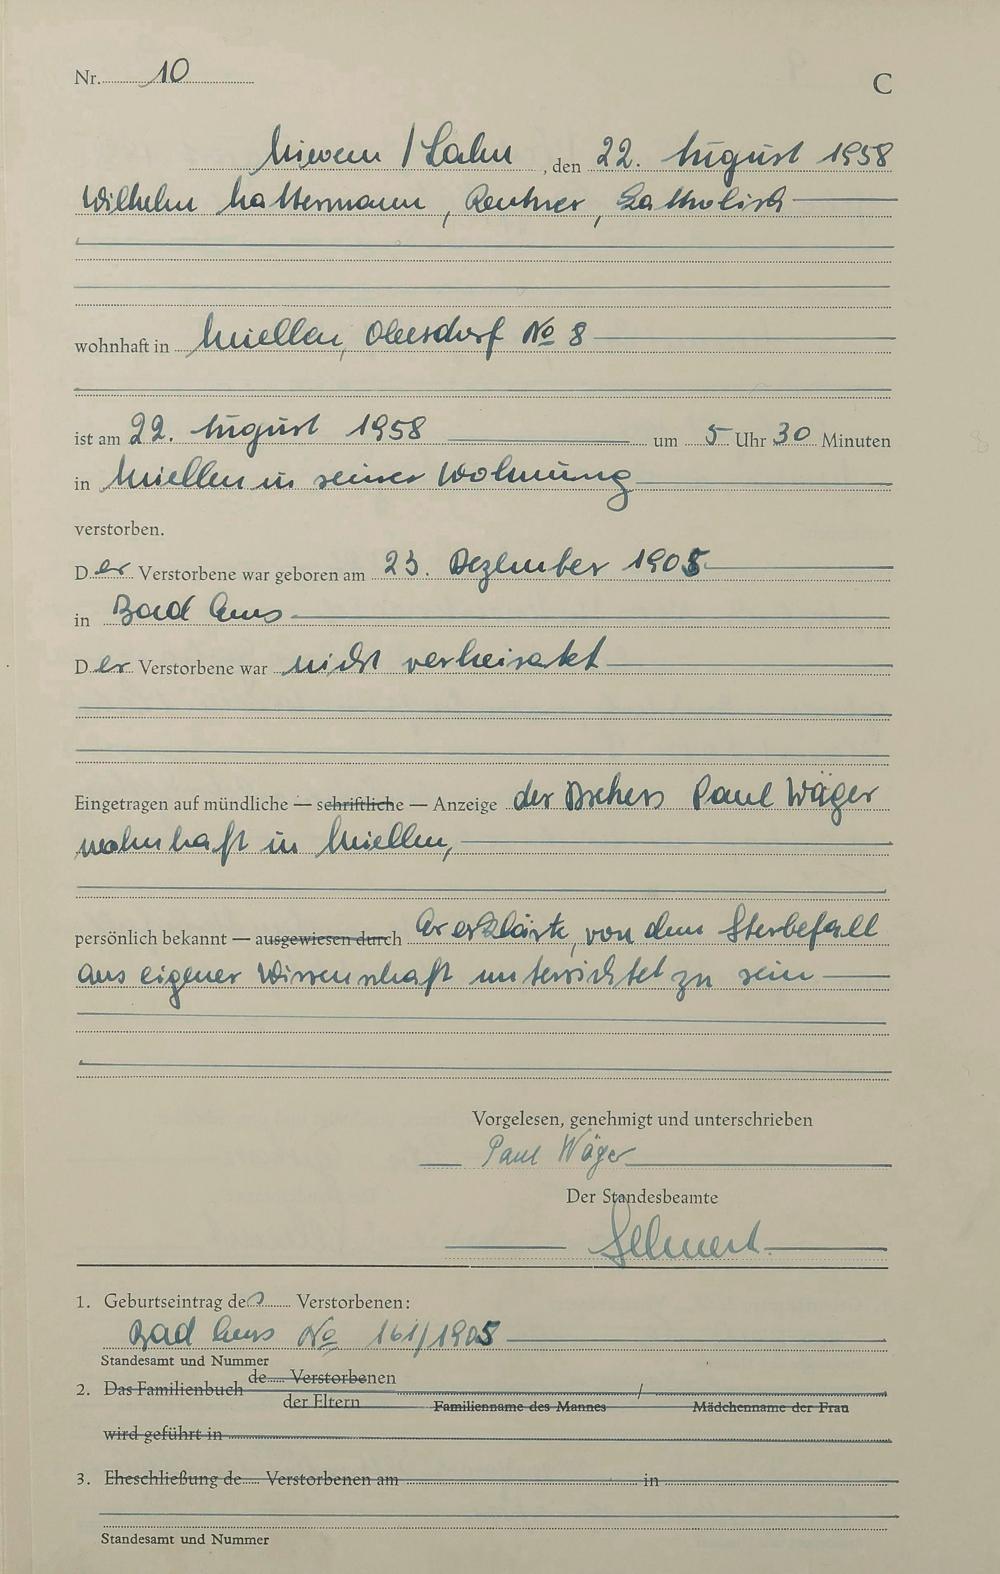 Nr. 10
C
Nievern / Lahn, den 22. August 1958
Wilhelm Rentner, katholisch
wohnhaft in Miellen, Oberdorf No 8
ist am 22. August 1958 um 5 Uhr 30 Minuten
in Miellen in seiner Wohnung
verstorben.
Der Verstorbene war geboren am 23. Dezember 1905
in Bad Ems
Der Verstorbene war nicht verheiratet
Eingetragen auf mündliche — schriftliche — Anzeige des Drehers Paul Wäger
wohnhaft in Miellen,
persönlich bekannt — ausgewiesen durch Er erklärte, von dem Sterbefall
aus eigener Wissenschaft unterrichtet zu sein
Vorgelesen, genehmigt und unterschrieben
Paul Wäger
Der Standesbeamte
1. Geburtseintrag des Verstorbenen:
Bad Ems No 161/1905
Standesamt und Nummer
de Verstorbenen
2. Das Familienbuch /
der Eltern Familienname des Mannes Mädchenname der Frau
wird geführt in
3. Eheschließung de Verstorbenen am in
Standesamt und Nummer